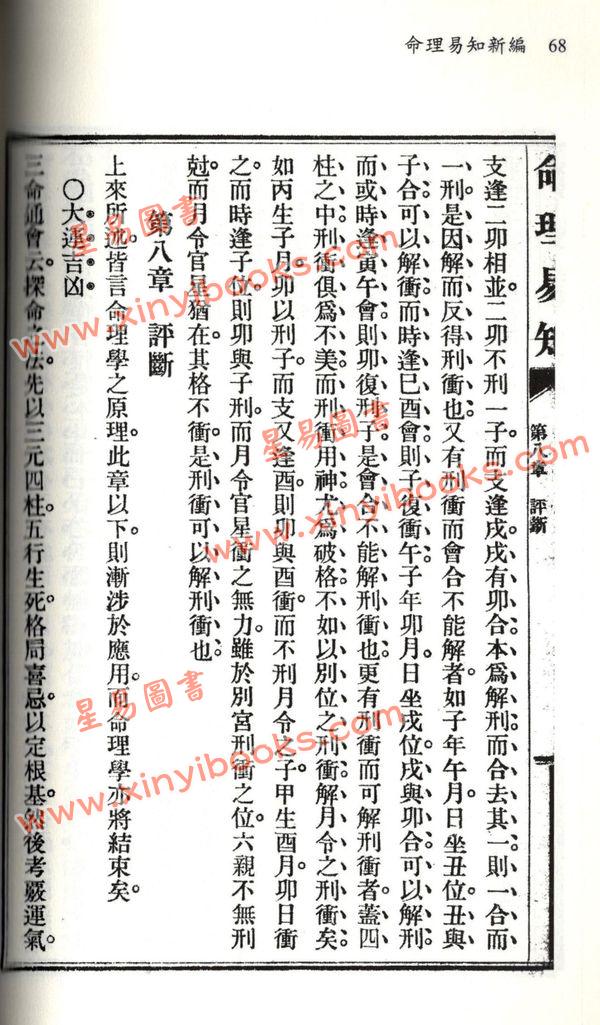 命理易知新編 68
命理易知
第八章 評斷
支逢二卯相並。二卯不刑一子。而支逢戌、戌有卯合、本爲解刑、而合去其一、則一合而
一刑。是因解而反得刑衝也。又有刑衝而會合不能解者。如子年午月。日坐丑位。丑與
子合可以解衝。而時逢巳酉會則子復衝午。子年卯月。日坐戌位。戌與卯合可以解刑。
而或時逢寅午會則卯復刑子。是會合不能解刑衝也。更有刑衝而可解刑衝者。蓋四
柱之中、刑衝俱爲不美、而刑衝用神、尤爲破格、不如以別位之刑衝、解月令之刑衝矣。
如丙生子月。卯以刑子。而支又逢酉。則卯與酉衝。而不刑月令之子。甲生酉月。卯日衝
之。而時逢子位。則卯與子刑。而月令官星衝之無力。雖於別宮刑衝之位。六親不無刑
尅。而月令官星猶在。其格不衝。是刑衝可以解刑衝也
第八章 評斷
上來所述。皆言命理學之原理。此章以下。則漸涉於應用。而命理學亦將結束矣。
〇大運吉凶
三命通會云。探命之法。先以三元四柱。五行生死。格局喜忌。以定根基。然後考嚴運氣。
星易圖書
www.xinyibooks.com
星易圖書
www.xinyibooks.com
星易圖書
www.xinyibooks.com